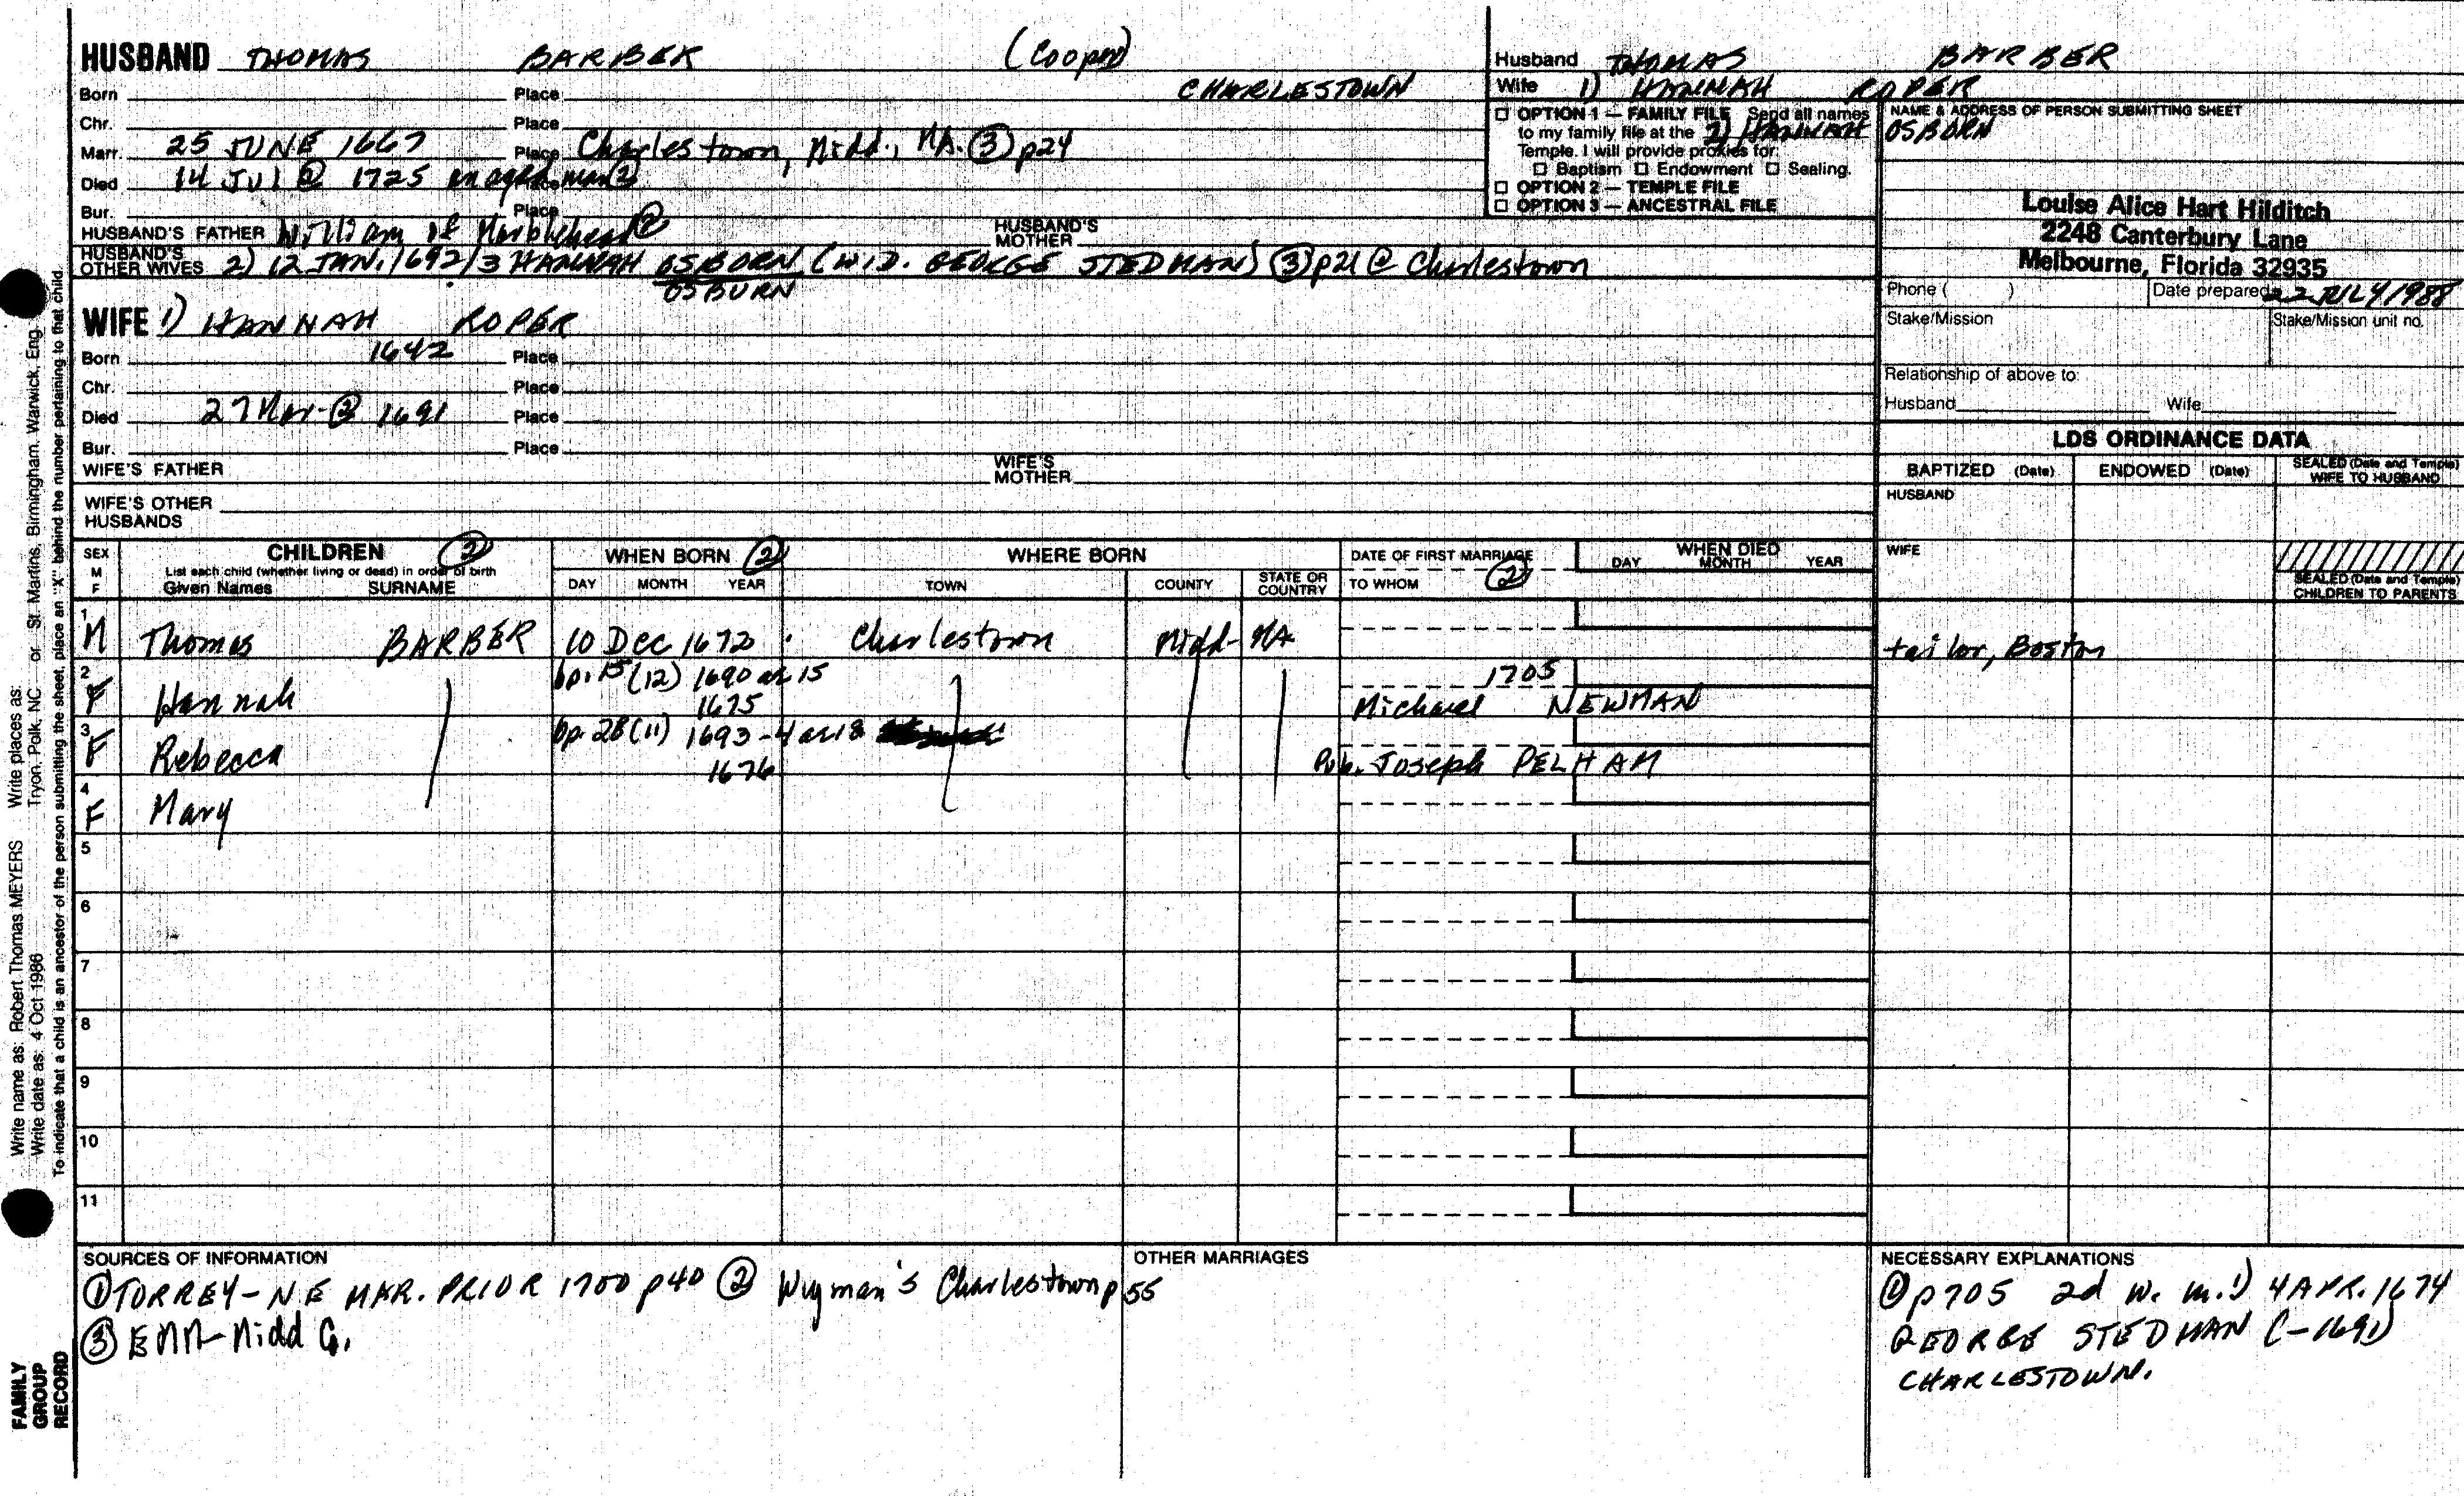 HUSBAND THOMAS BARBER (Cooper) CHARLESTOWN
Born Place
Chr. Place
Marr. 25 JUNE 1667 Place Charlestown, Midd., MA. ③ p24
Died 14 Jul ② 1725 an aged man ② Place
Bur. Place
HUSBAND'S FATHER William of Marblehead ② HUSBAND'S MOTHER
HUSBAND'S OTHER WIVES 2) 12 JAN. 1692/3 HANNAH OSBORN (WID. GEORGE STEDMAN) ③ p21 @ Charlestown
OSBURN
WIFE 1) HANNAH ROPER
Born 1642 Place
Chr. Place
Died 27 Mar ② 1691 Place
Bur. Place
WIFE'S FATHER WIFE'S MOTHER
WIFE'S OTHER HUSBANDS
Husband THOMAS BARBER
Wife 1) HANNAH ROPER
2) HANNAH OSBORN
☐ OPTION 1 — FAMILY FILE Send all names
to my family file at the
Temple. I will provide proxies for:
☐ Baptism ☐ Endowment ☐ Sealing.
☐ OPTION 2 — TEMPLE FILE
☐ OPTION 3 — ANCESTRAL FILE
NAME & ADDRESS OF PERSON SUBMITTING SHEET
Louise Alice Hart Hilditch
2248 Canterbury Lane
Melbourne, Florida 32935
Phone ( ) Date prepared 22 JULY 1988
Stake/Mission Stake/Mission unit no.
Relationship of above to:
Husband Wife
LDS ORDINANCE DATA
BAPTIZED (Date) ENDOWED (Date) SEALED (Date and Temple) WIFE TO HUSBAND
HUSBAND
WIFE
SEALED (Date and Temple) CHILDREN TO PARENTS
SEX M F
CHILDREN ②
List each child (whether living or dead) in order of birth
Given Names SURNAME
WHEN BORN ②
DAY MONTH YEAR
WHERE BORN
TOWN COUNTY STATE OR COUNTRY
DATE OF FIRST MARRIAGE
TO WHOM ②
WHEN DIED
DAY MONTH YEAR
1 M Thomas BARBER 10 Dec 1672 Charlestown Midd- MA tailor, Boston
2 F Hannah bp. 15 (12) 1690 ae 15 1705
1675 Michael NEWMAN
3 F Rebecca bp. 28 (11) 1693-4 ae 18
1676 Pub. Joseph PELHAM
4 F Mary
5
6
7
8
9
10
11
SOURCES OF INFORMATION
① TORREY - N E MAR. PRIOR 1700 p40 ② Wyman's Charlestown p 55
③ Midd Co.
OTHER MARRIAGES
NECESSARY EXPLANATIONS
① p705 2d w. m. 1) 4 APR. 1674
GEORGE STEDMAN (-1691)
CHARLESTOWN.
Write name as: Robert Thomas MEYERS Write places as:
Write date as: 4 Oct 1986 Tryon, Polk, NC or St. Martins, Birmingham, Warwick, Eng.
To indicate that a child is an ancestor of the person submitting the sheet, place an "X" behind the number pertaining to that child.
FAMILY
GROUP
RECORD